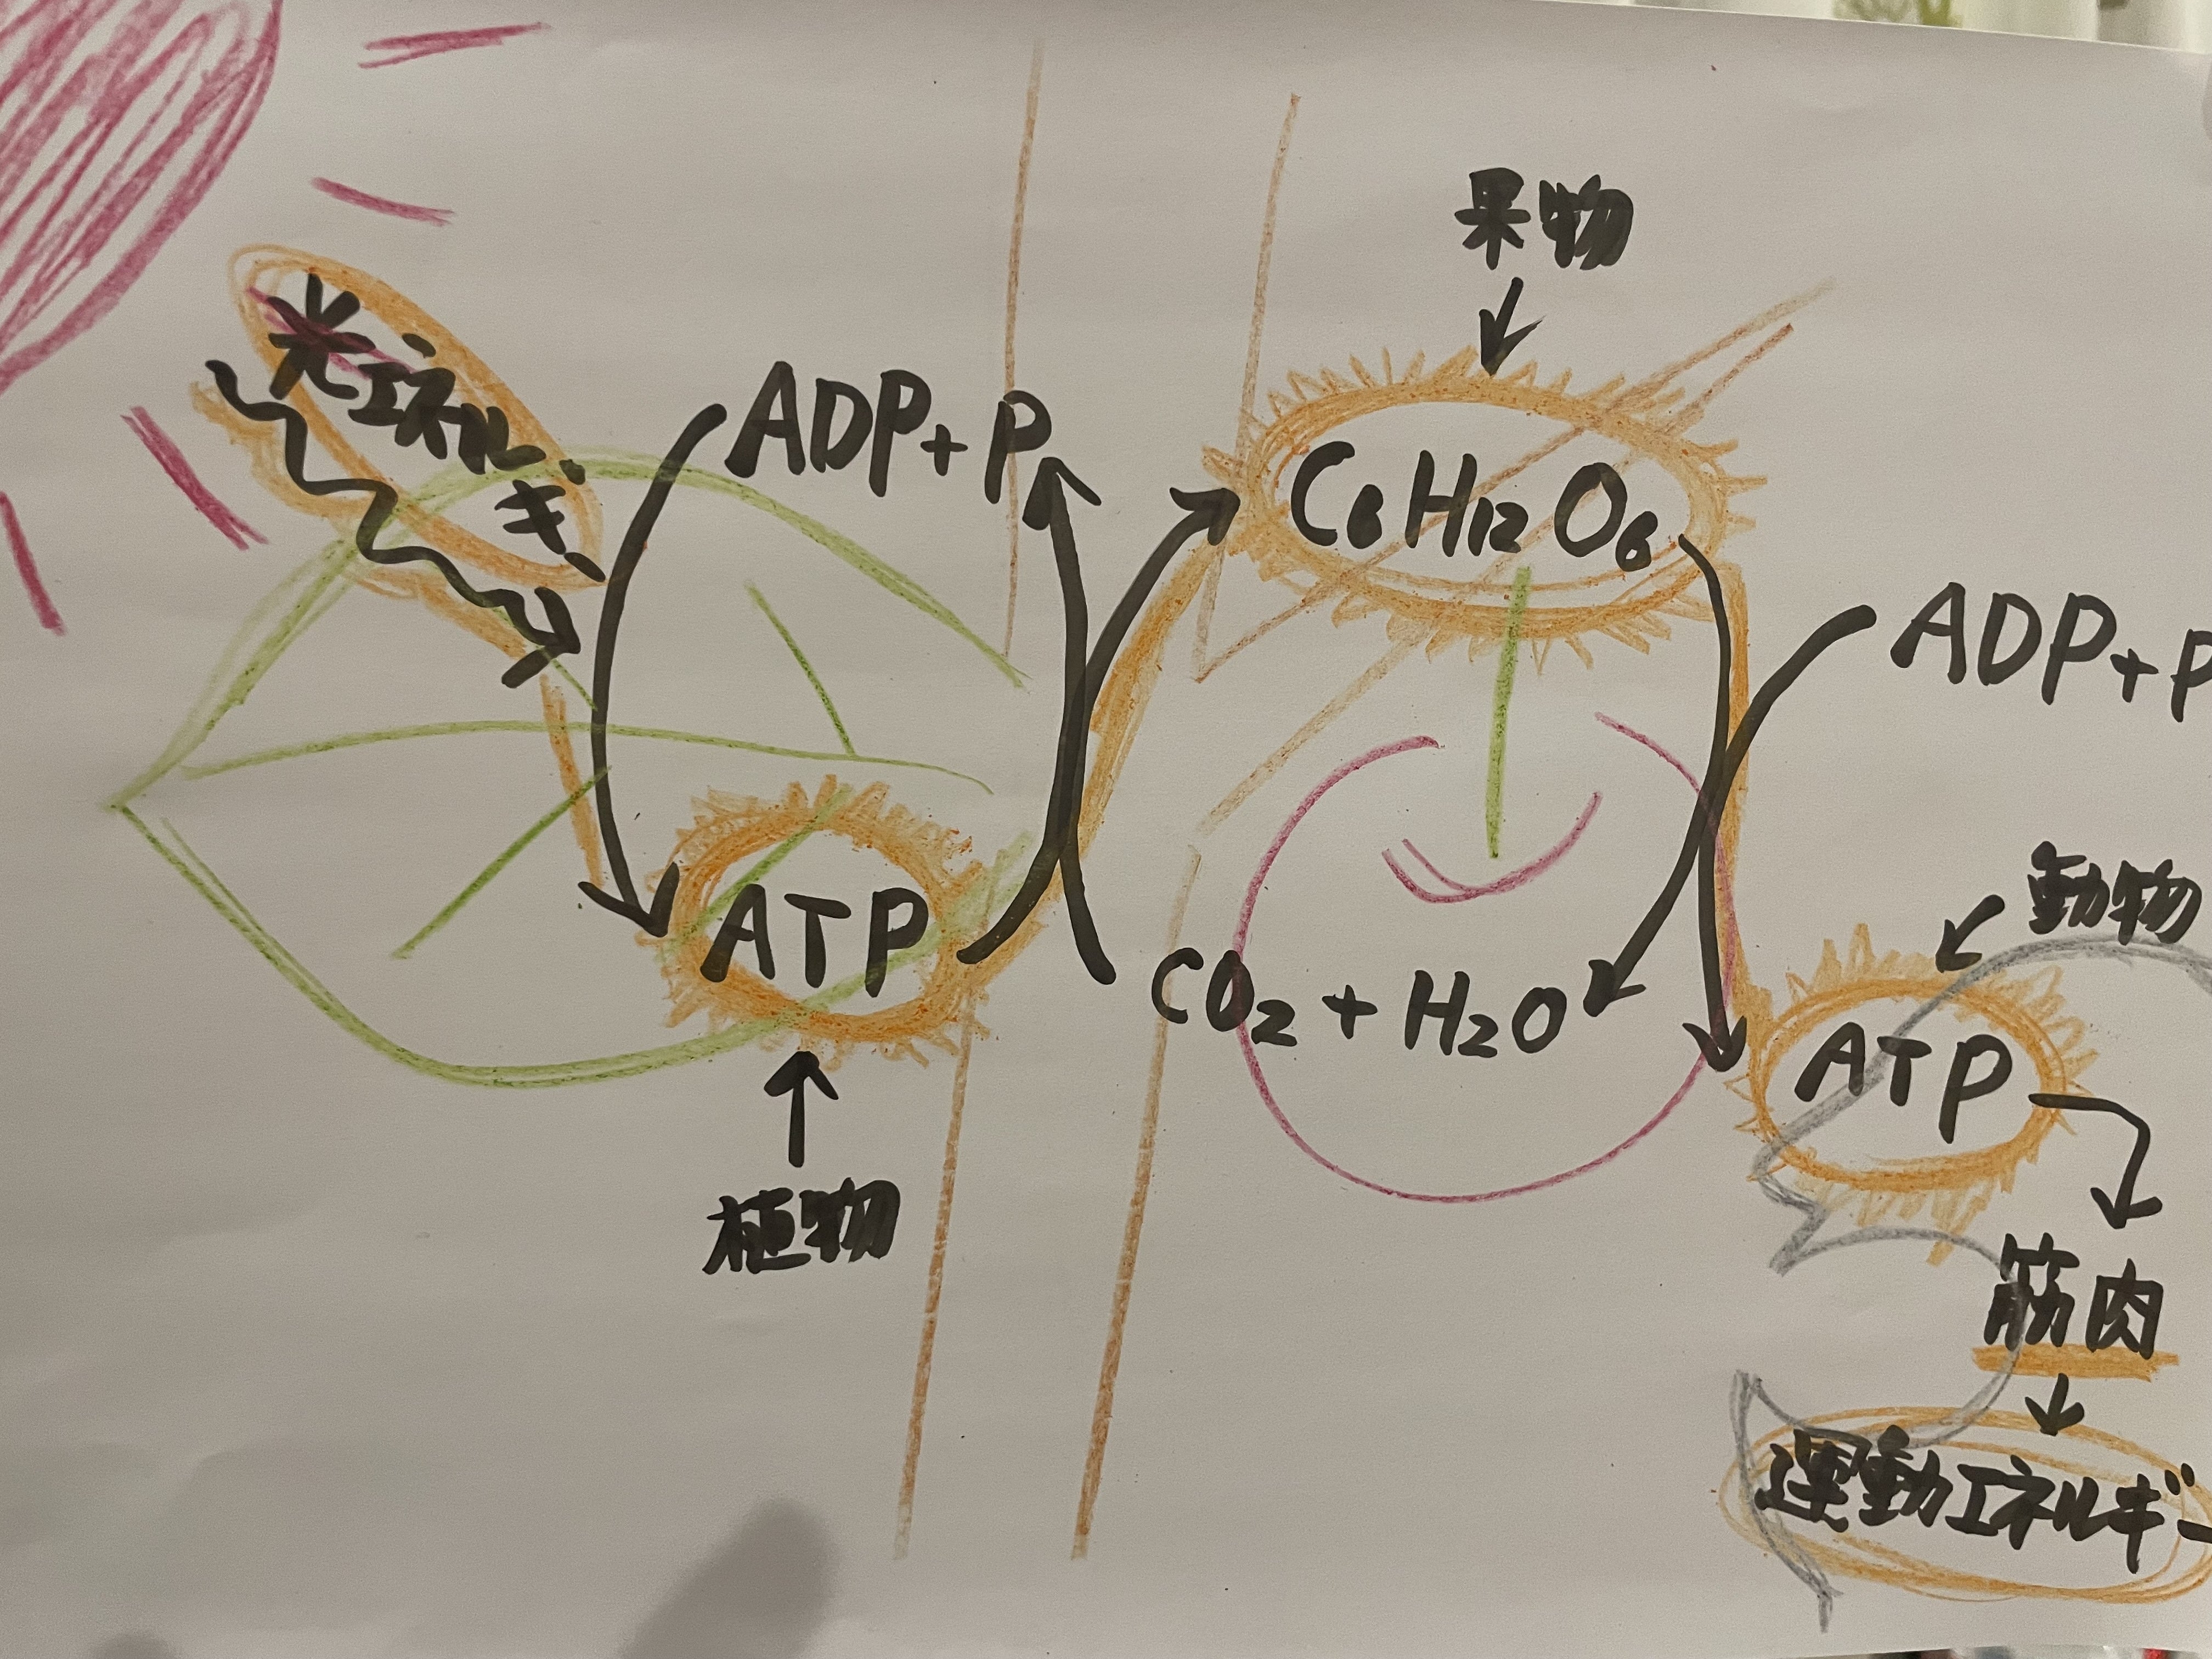 光エネルギー
ADP+P
ATP
植物
果物
C6H12O6
CO2+H2O
ADP+P
動物
ATP
筋肉
運動エネルギー